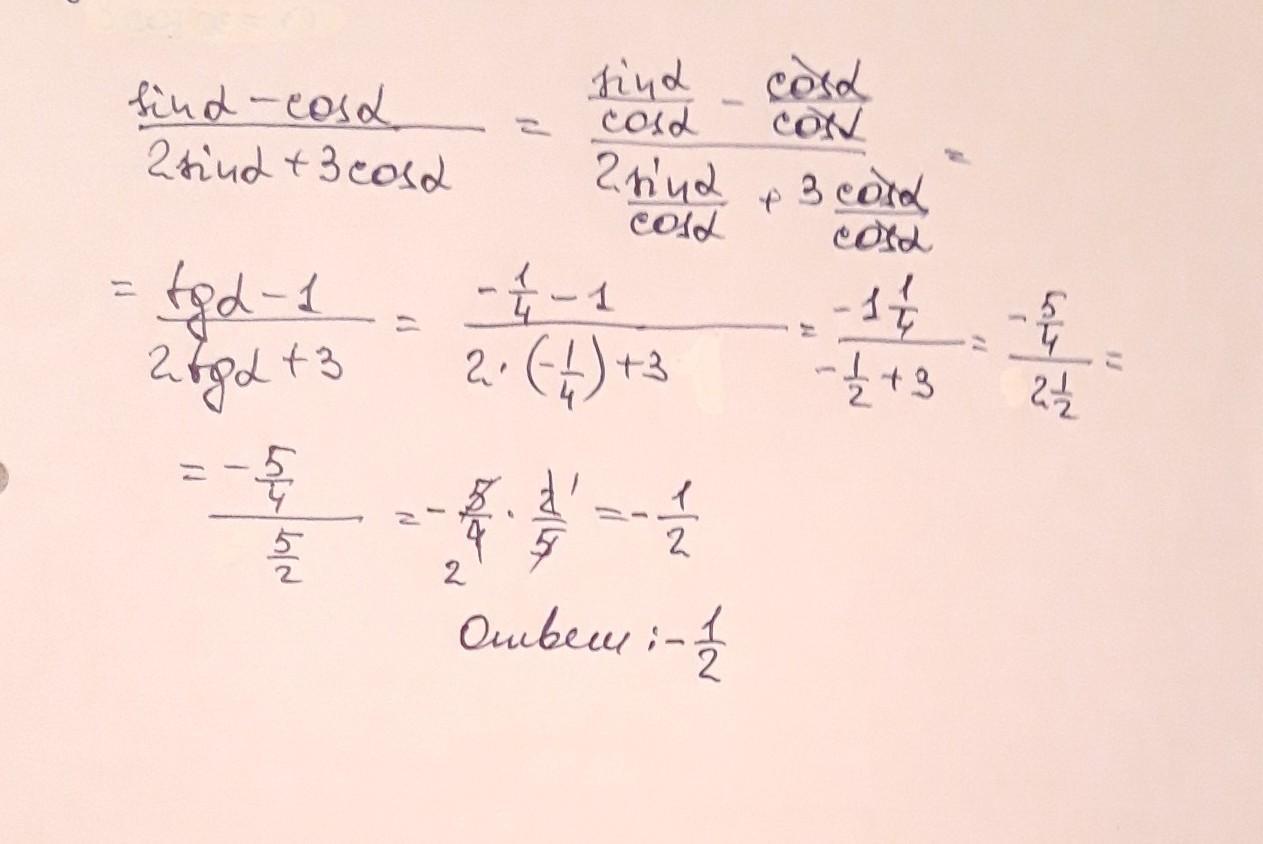 (sin α − cos α)/(2 sin α + 3 cos α) = (sin α/cos α − cos α/cos α)/(2 sin α/cos α + 3 cos α/cos α) =
= (tg α − 1)/(2 tg α + 3) = (−1/4 − 1)/(2 · (−1/4) + 3) = (−1 1/4)/(−1/2 + 3) = (−5/4)/(2 1/2) =
= (−5/4)/(5/2) = −5/4 · 2/5 = −1/2
Ответ: −1/2